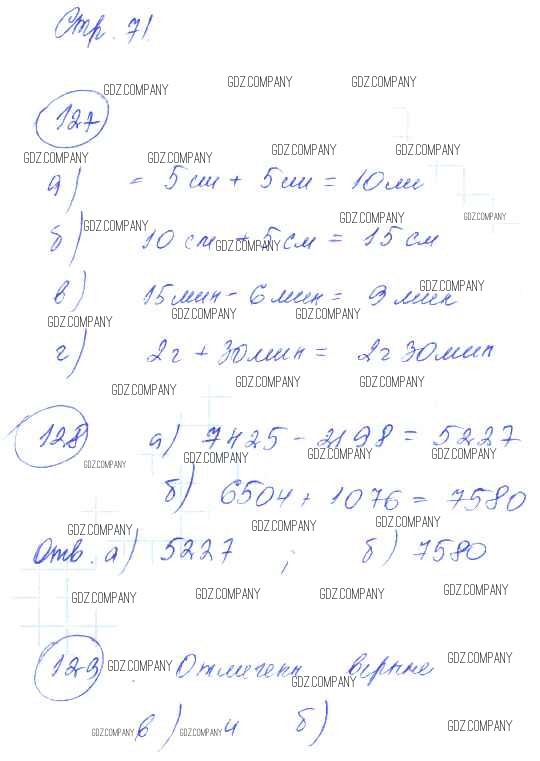 Стр. 71.
GDZ.COMPANY GDZ.COMPANY GDZ.COMPANY
127
GDZ.COMPANY GDZ.COMPANY GDZ.COMPANY GDZ.COMPANY
а) = 5 см + 5 см = 10 см
GDZ.COMPANY GDZ.COMPANY GDZ.COMPANY GDZ.COMPANY
б) 10 см + 5 см = 15 см
GDZ.COMPANY
в) 15 мин - 6 мин = 9 мин
GDZ.COMPANY GDZ.COMPANY GDZ.COMPANY
г) 2 г + 30 мин = 2 г 30 мин
GDZ.COMPANY GDZ.COMPANY GDZ.COMPANY
128 а) 7425 - 2198 = 5227
GDZ.COMPANY GDZ.COMPANY GDZ.COMPANY GDZ.COMPANY
б) 6504 + 1076 = 7580
GDZ.COMPANY GDZ.COMPANY GDZ.COMPANY
Отв. а) 5227 ; б) 7580
GDZ.COMPANY GDZ.COMPANY GDZ.COMPANY GDZ.COMPANY
129 GDZ.COMPANY Отмечены верные GDZ.COMPANY
GDZ.COMPANY
GDZ.COMPANY в) GDZ.COMPANY и б) GDZ.COMPANY